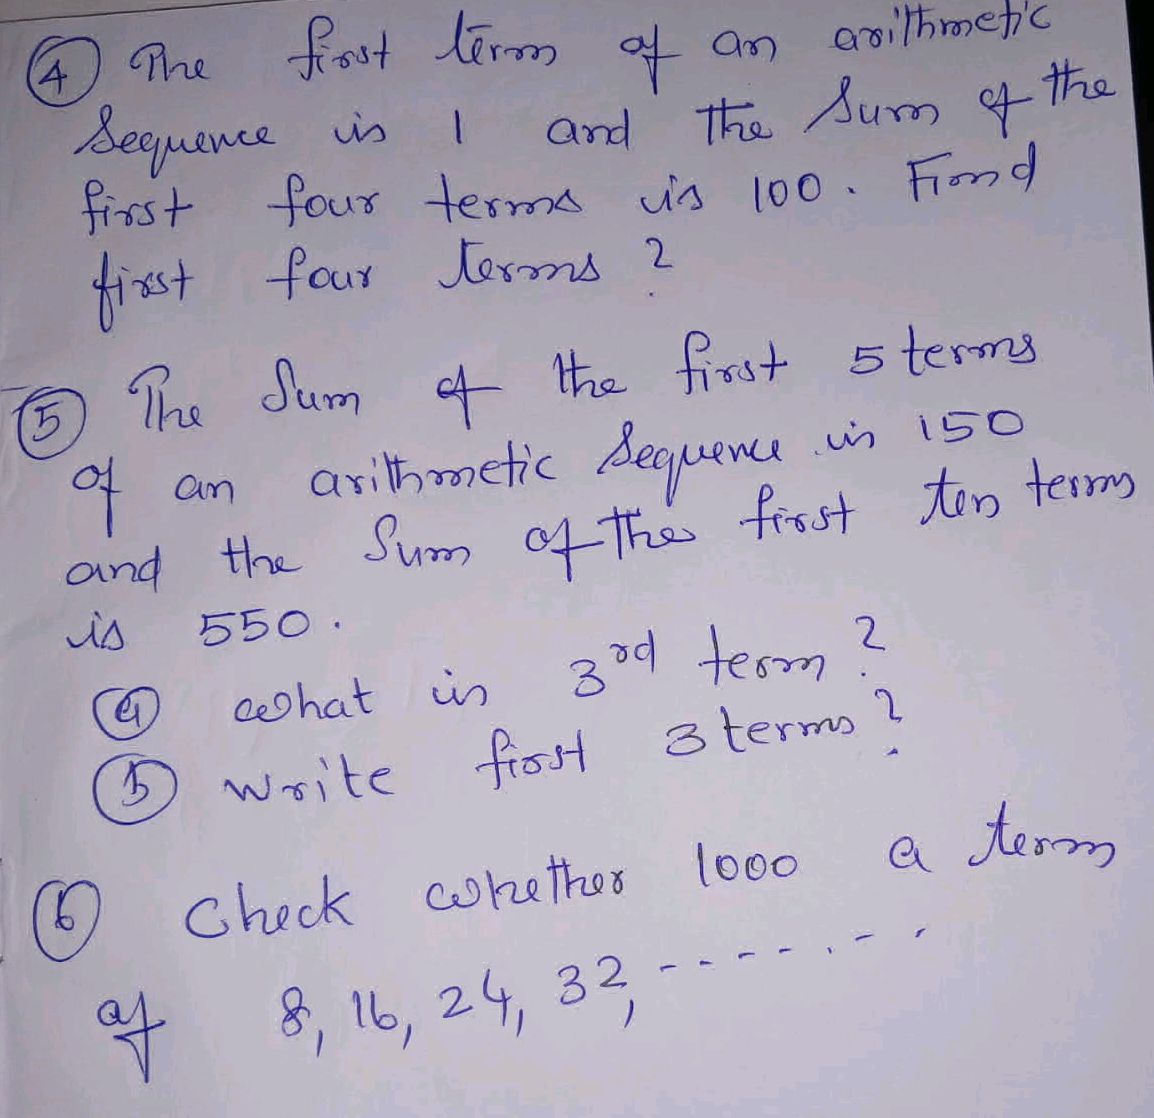 ④ The first term of an arithmetic
Sequence is 1 and the sum of the
first four terms is 100. Find
first four terms?
⑤ The sum of the first 5 terms
of an arithmetic sequence is 150
and the sum of the first ten terms
is 550.
ⓐ what is 3rd term?
ⓑ write first 3 terms?
⑥ Check whether 1000 a term
of 8, 16, 24, 32, --------